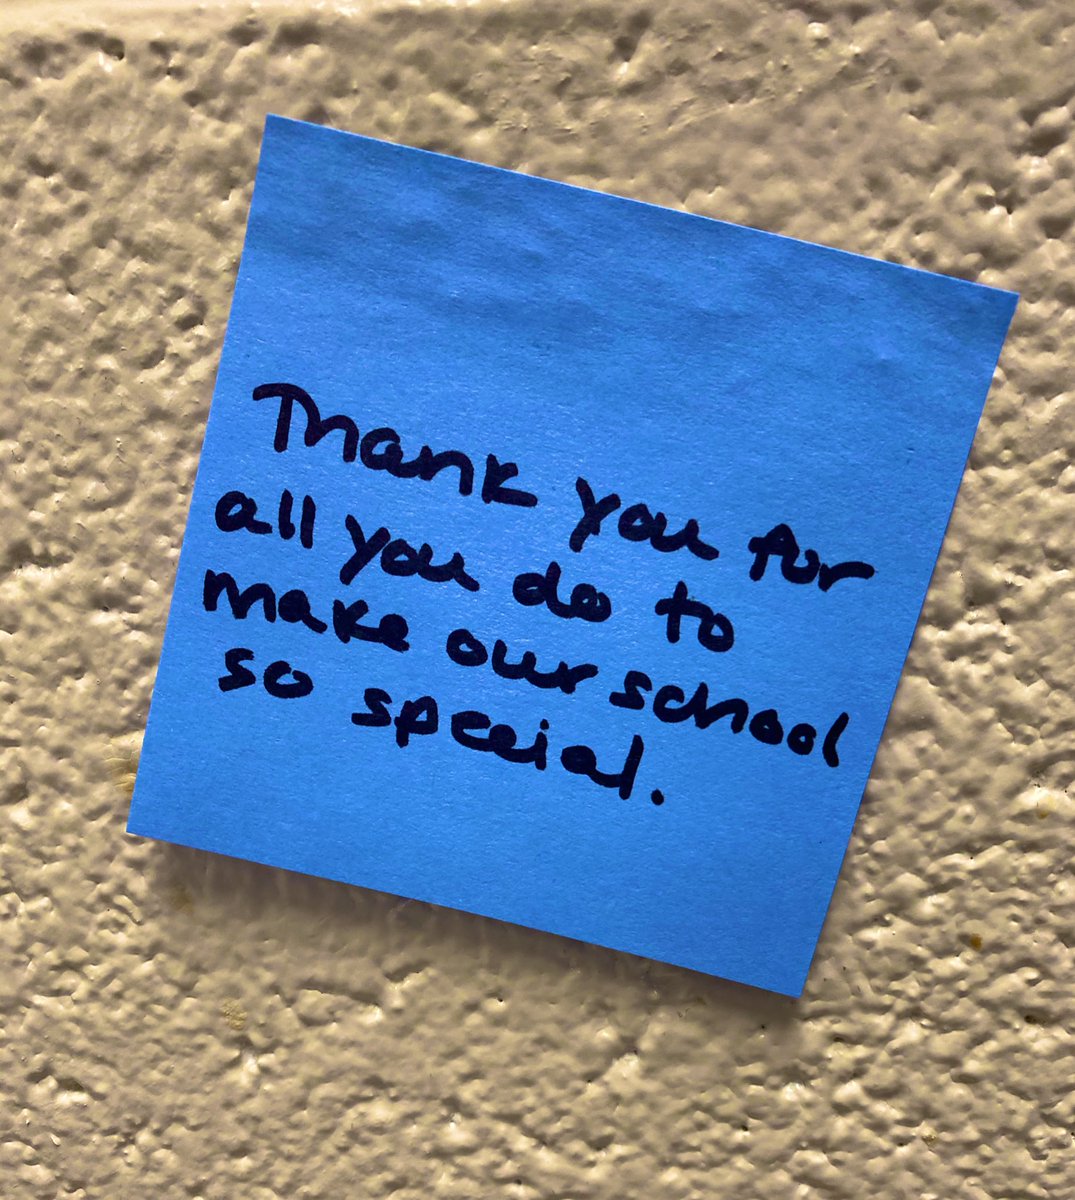 Thank you for
all you do to
make our school
so special.